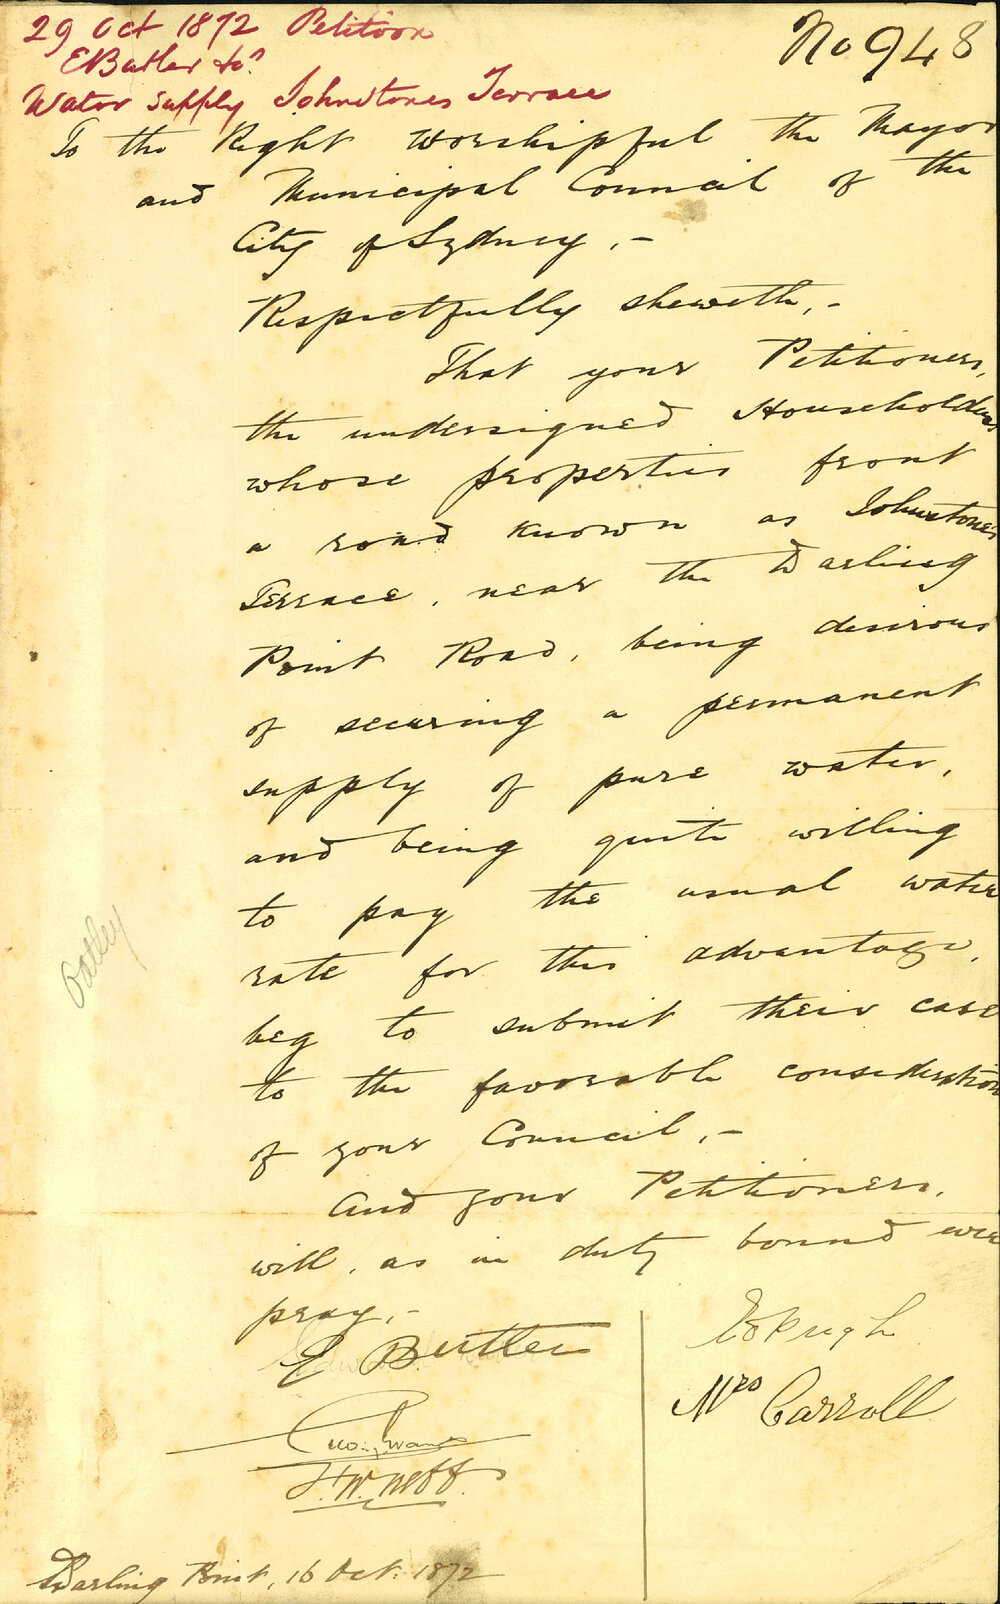 29 Oct 1872 Petition
No 948
E Butler &c
Water supply Johnstones Terrace
To the Right Worshipful the Mayor
and Municipal Council of the
City of Sydney,-
Respectfully sheweth,-
That your Petitioners,
the undersigned Householders
whose properties front
a road known as Johnstones
Terrace, near the Darling
Point Road, being desirous
of securing a permanent
supply of pure water,
and being quite willing
to pay the usual water
rate for this advantage,
beg to submit their case
to the favorable consideration
of your Council,-
And your Petitioners,
will, as in duty bound ever
pray,-
E Butler
Pugh
Mrs Carroll
F.W. Neff.
Darling Point, 16 Oct. 1872
Oatley